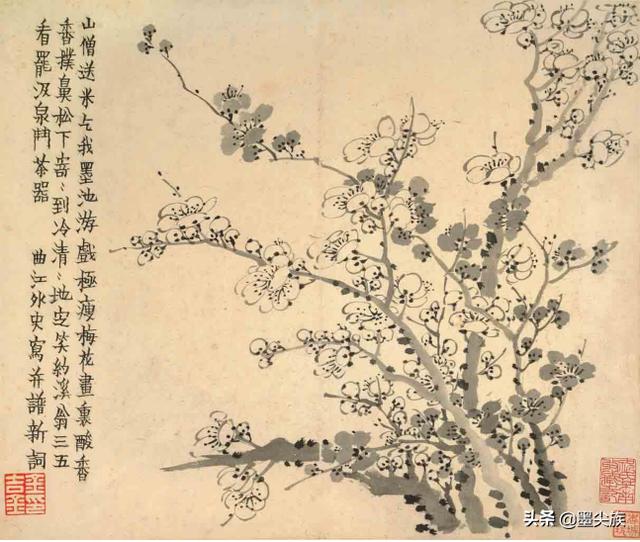 山僧送米乞我墨池游戲極瘦梅花畫裏酸香
香撲鼻松下寄〻到冷清〻地定笑約溪翁三五
看罷汲泉鬥茶器 曲江外史寫并譜新詞
头条 @墨尖族